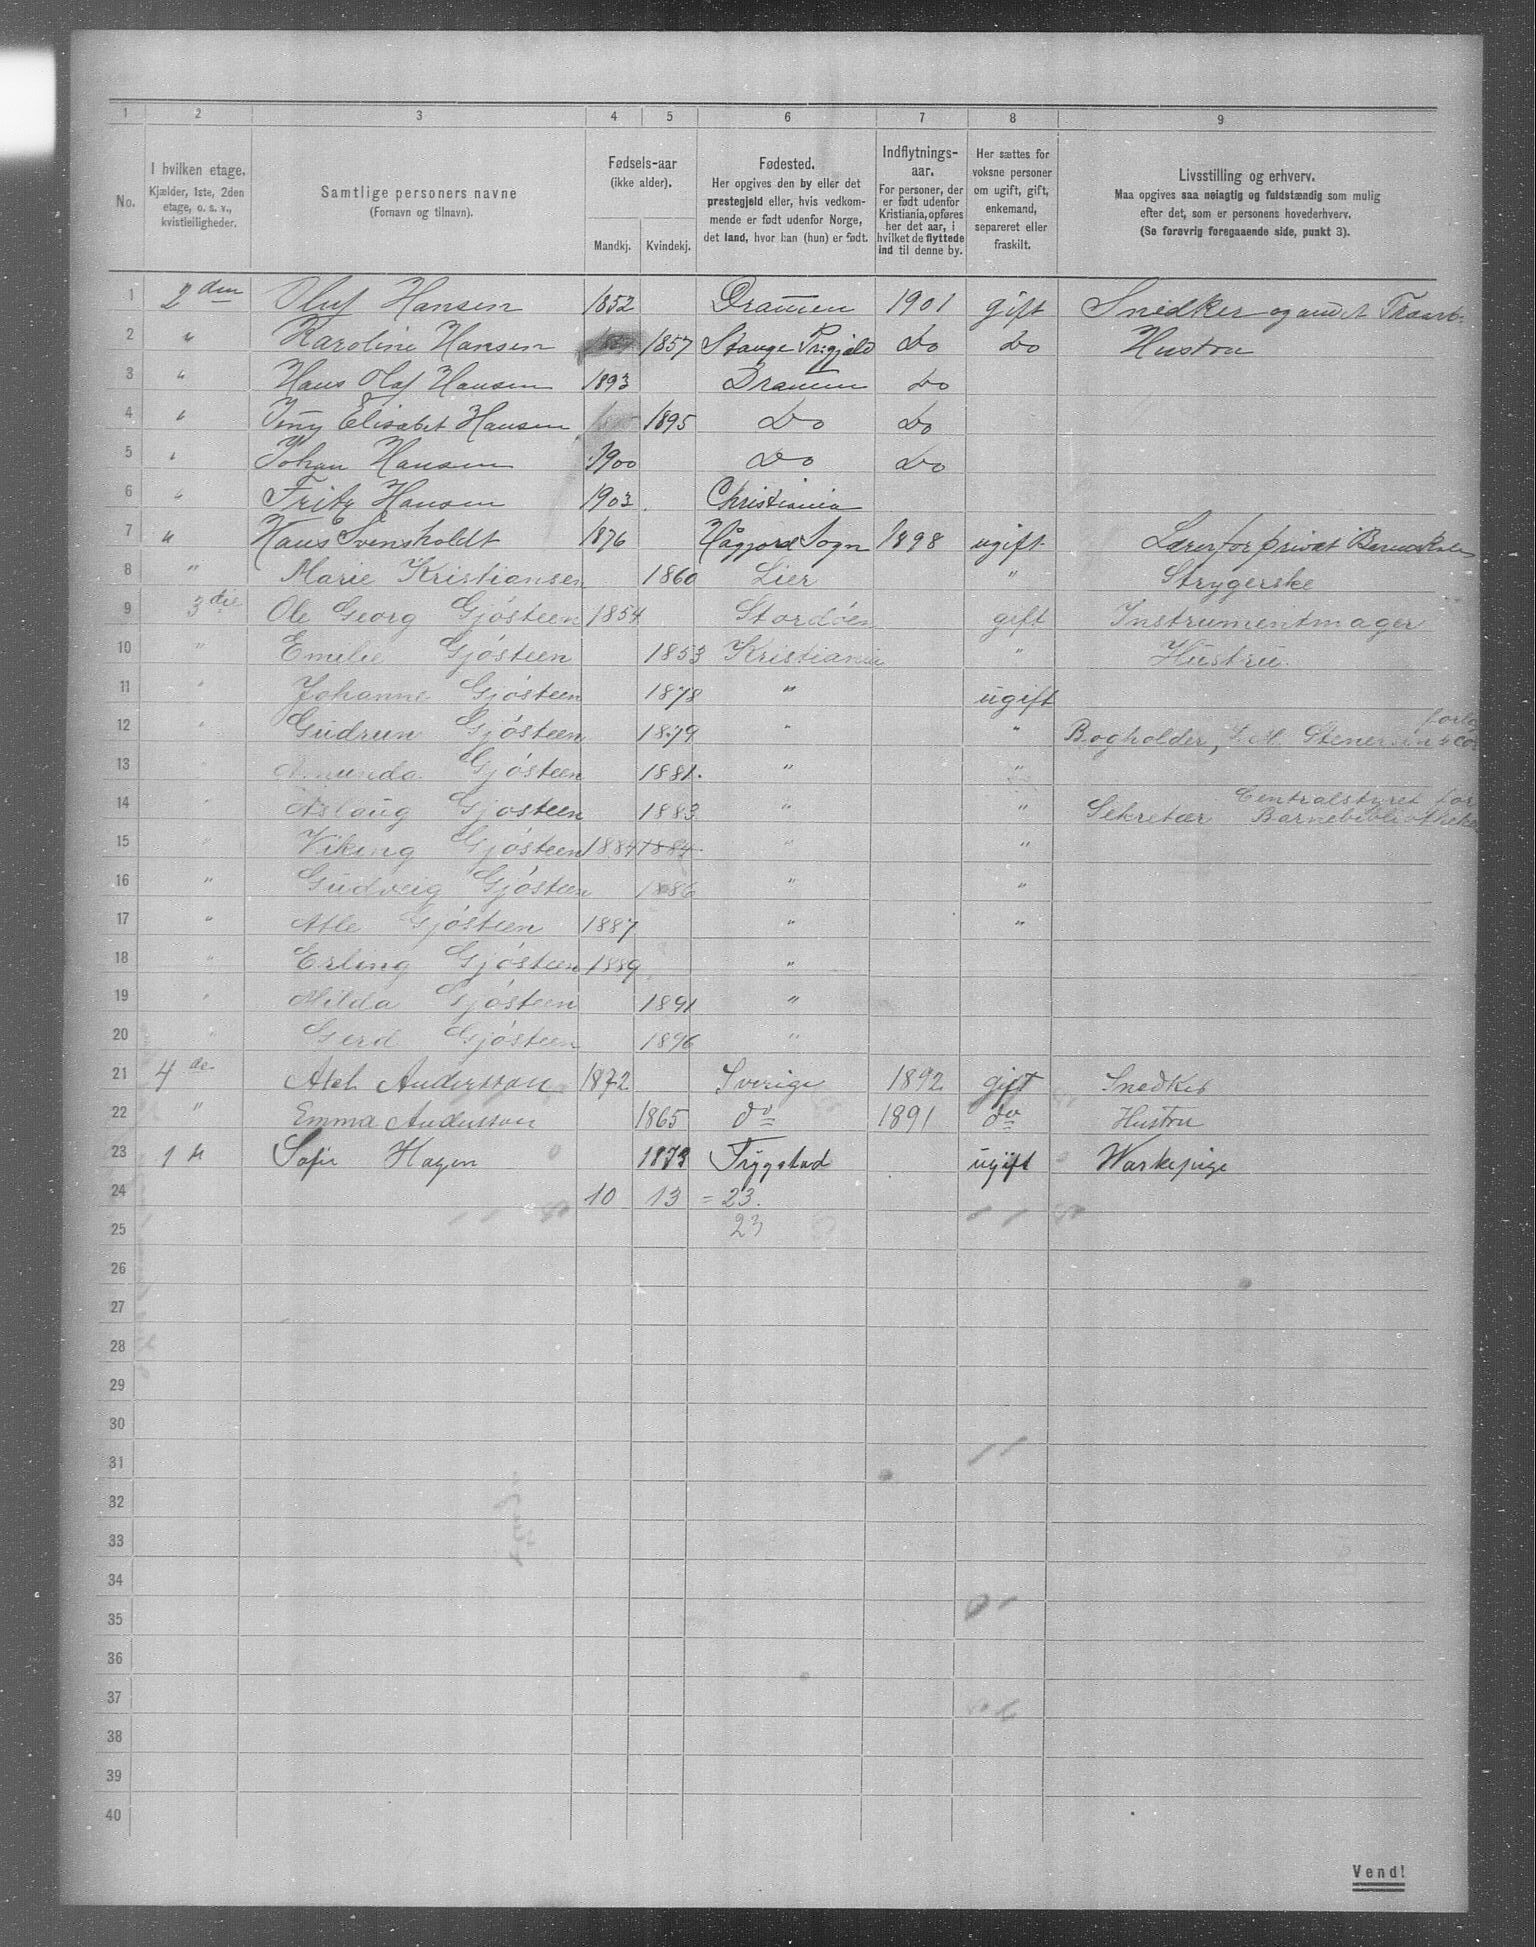 1 2 3 4 5 6 7 8 9
No.
I hvilken etage.
Kjælder, 1ste, 2den
etage, o. s. v.,
kvistleiligheder.
Samtlige personers navne
(Fornavn og tilnavn).
Fødsels-aar
(ikke alder).
Mandkj. Kvindekj.
Fødested.
Her opgives den by eller det
prestegjeld eller, hvis vedkom-
mende er født udenfor Norge,
det land, hvor han (hun) er født.
Indflytnings-
aar.
For personer, der
er født udenfor
Kristiania, opføres
her det aar, i
hvilket de flyttede
ind til denne by.
Her sættes for
voksne personer
om ugift, gift,
enkemand,
separeret eller
fraskilt.
Livsstilling og erhverv.
Maa opgives saa nøiagtig og fuldstændig som mulig
efter det, som er personens hovederhverv.
(Se forøvrig foregaaende side, punkt 3).
1 2 den Oluf Hansen 1852 Dramen 1901 gift Snedker og andet
2 " Karoline Hansen 1857 Stange Do Do Hustru
3 " Hans Olaf Hansen 1893 Dramen Do
4 " Jeny Elisabet Hansen 1895 Do Do
5 " Johan Hansen 1900 Do Do
6 " Fritz Hansen 1903 Christiania
7 " Hans Svensholdt 1876 Sogn 1898 ugift Lærer for privat
8 " Marie Kristiansen 1860 Lier " Strygerske
9 3die Ole Georg Gjösteen 1854 Stordöen gift Instrumentmager
10 " Emilie Gjösteen 1853 Kristiania " Hustru.
11 " Johanne Gjösteen 1878 " ugift
12 " Gudrun Gjösteen 1879 " " Bogholder, J. M. Stenersen & Co's forlag
13 " Amunda Gjösteen 1881. " "
14 " Aslaug Gjösteen 1883 " " Sekretær Centralstyret for Barnebibliotheker
15 " Viking Gjösteen 1884 1884 " "
16 " Gudveig Gjösteen 1886 " "
17 " Atle Gjösteen 1887 " "
18 " Erling Gjösteen 1889 "
19 " Milda Gjösteen 1891 "
20 " Gerd Gjösteen 1896 "
21 4 de Axel Andersson 1872 Sverige 1892 gift Snedker
22 " Emma Andersson 1865 do 1891 do Hustru
23 1 st Sofie Hagen 1873 Trygstad ugift Waskepige
24 10 13 = 23.
25 23
26
27
28
29
30
31
32
33
34
35
36
37
38
39
40
Vend!